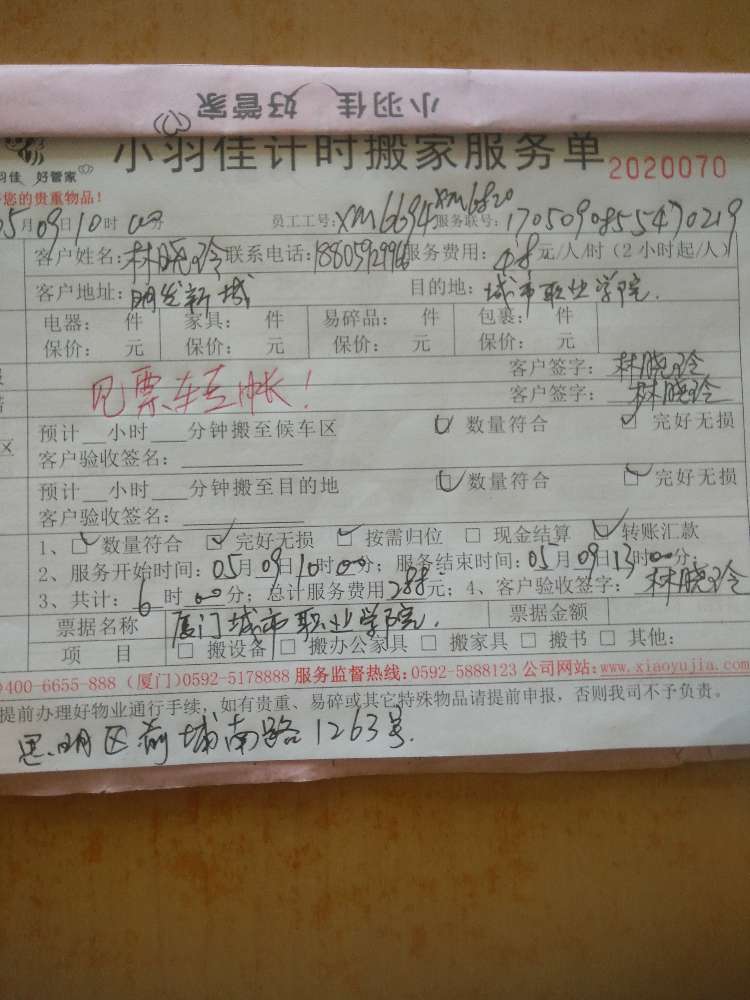 小羽佳 好管家
小羽佳计时搬家服务单 2020070
羽佳 好管家
您的贵重物品!
05月09日10时00分 员工工号:XM6694 XM6820 服务联号:1705090855470219
客户姓名:林晓玲 联系电话:18805929966 服务费用:48元/人/时(2小时起/人)
客户地址:明发新城 目的地:城市职业学院.
电器: 件 家具: 件 易碎品: 件 包裹: 件
保价: 元 保价: 元 保价: 元 保价: 元
客户签字:林晓玲
见票转帐! 客户签字:林晓玲
区 预计__小时___分钟搬至候车区 数量符合 完好无损
客户验收签名:
预计__小时___分钟搬至目的地 数量符合 完好无损
客户验收签名:
1、 数量符合 完好无损 按需归位 现金结算 转账汇款
2、服务开始时间:05月09日10时00分; 服务结束时间:05月09日13时00分;
3、共计:6时00分; 总计服务费用288元; 4、客户验收签字:林晓玲
票据名称 厦门城市职业学院. 票据金额
项 目 搬设备 搬办公家具 搬家具 搬书 其他:
400-6655-888 (厦门)0592-5178888 服务监督热线:0592-5888123 公司网站:www.xiaoyujia.com
提前办理好物业通行手续,如有贵重、易碎或其它特殊物品请提前申报,否则我司不予负责。
思明区前埔南路1263号.